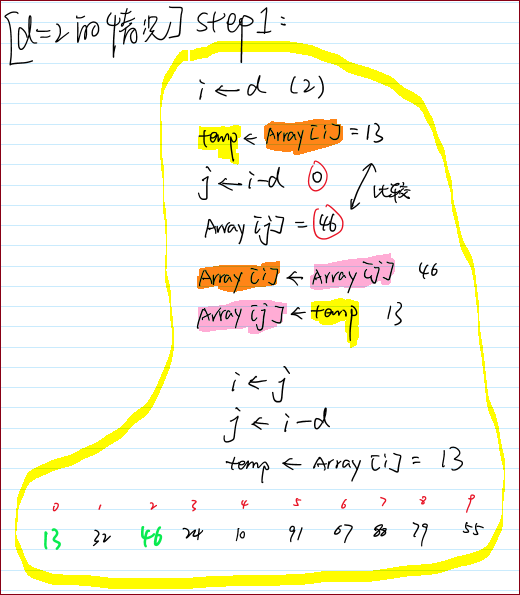 [d=2的情况] step1:
i ← d (2)
temp ← Array[i] = 13
j ← i-d 0
比较
Array[j] = 46
Array[i] ← Array[j] 46
Array[j] ← temp 13
i ← j
j ← i-d
temp ← Array[i] = 13
0 1 2 3 4 5 6 7 8 9
13 32 46 24 10 91 67 88 79 55